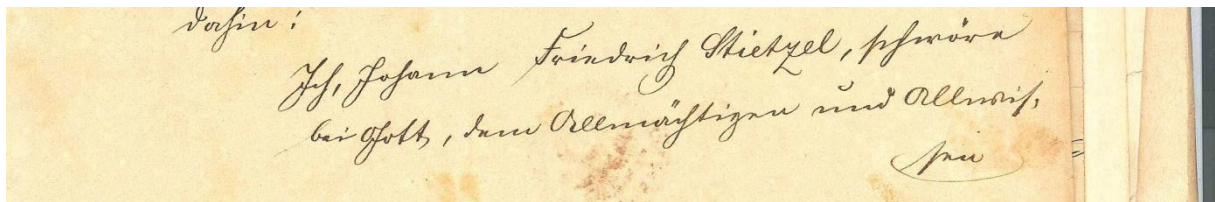 dahin:
Ich, Johann Friedrich Stietzel, schwöre
bei Gott, dem Allmächtigen und Allwis-
sen